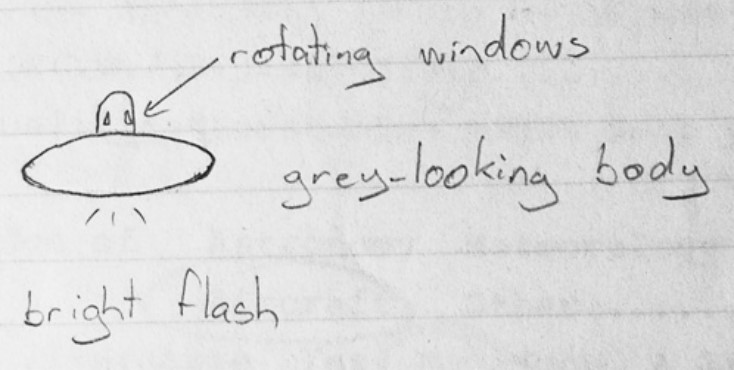 rotating windows
grey-looking body
bright flash